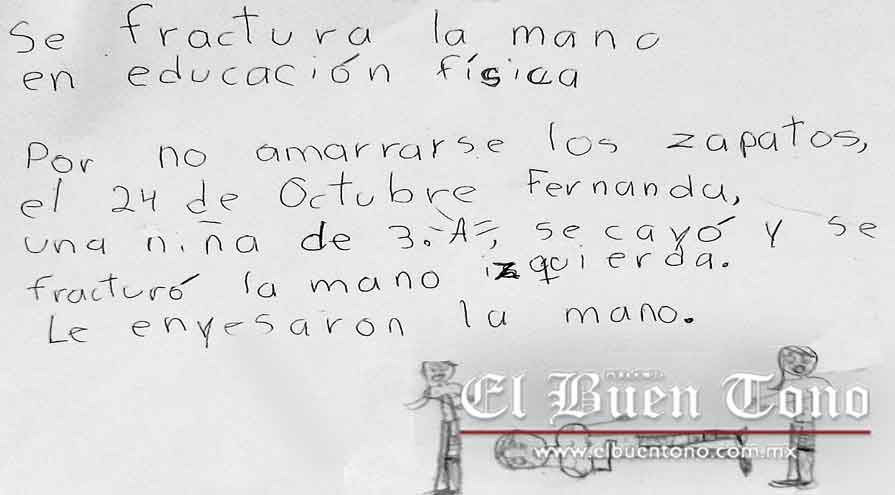 Se fractura la mano
en educación física
Por no amarrarse los zapatos,
el 24 de Octubre Fernanda,
una niña de 3.°A=, se cayó y se
fracturó la mano izquierda.
Le enyesaron la mano.
El Buen Tono
www.elbuentono.com.mx